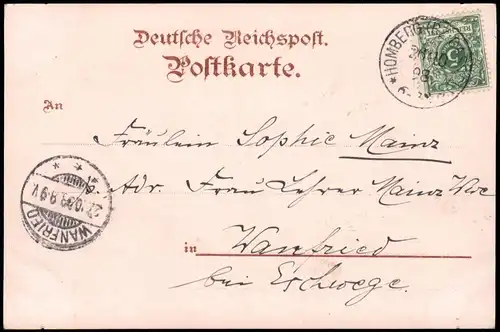 Deutsche Reichspost.
Postkarte.
An
Fräulein Sophie Mainz
p. Adr. Frau Lehrer Mainz Wve
in Wanfried
bei Eschwege.
* HOMBERG
WANFRIED
5